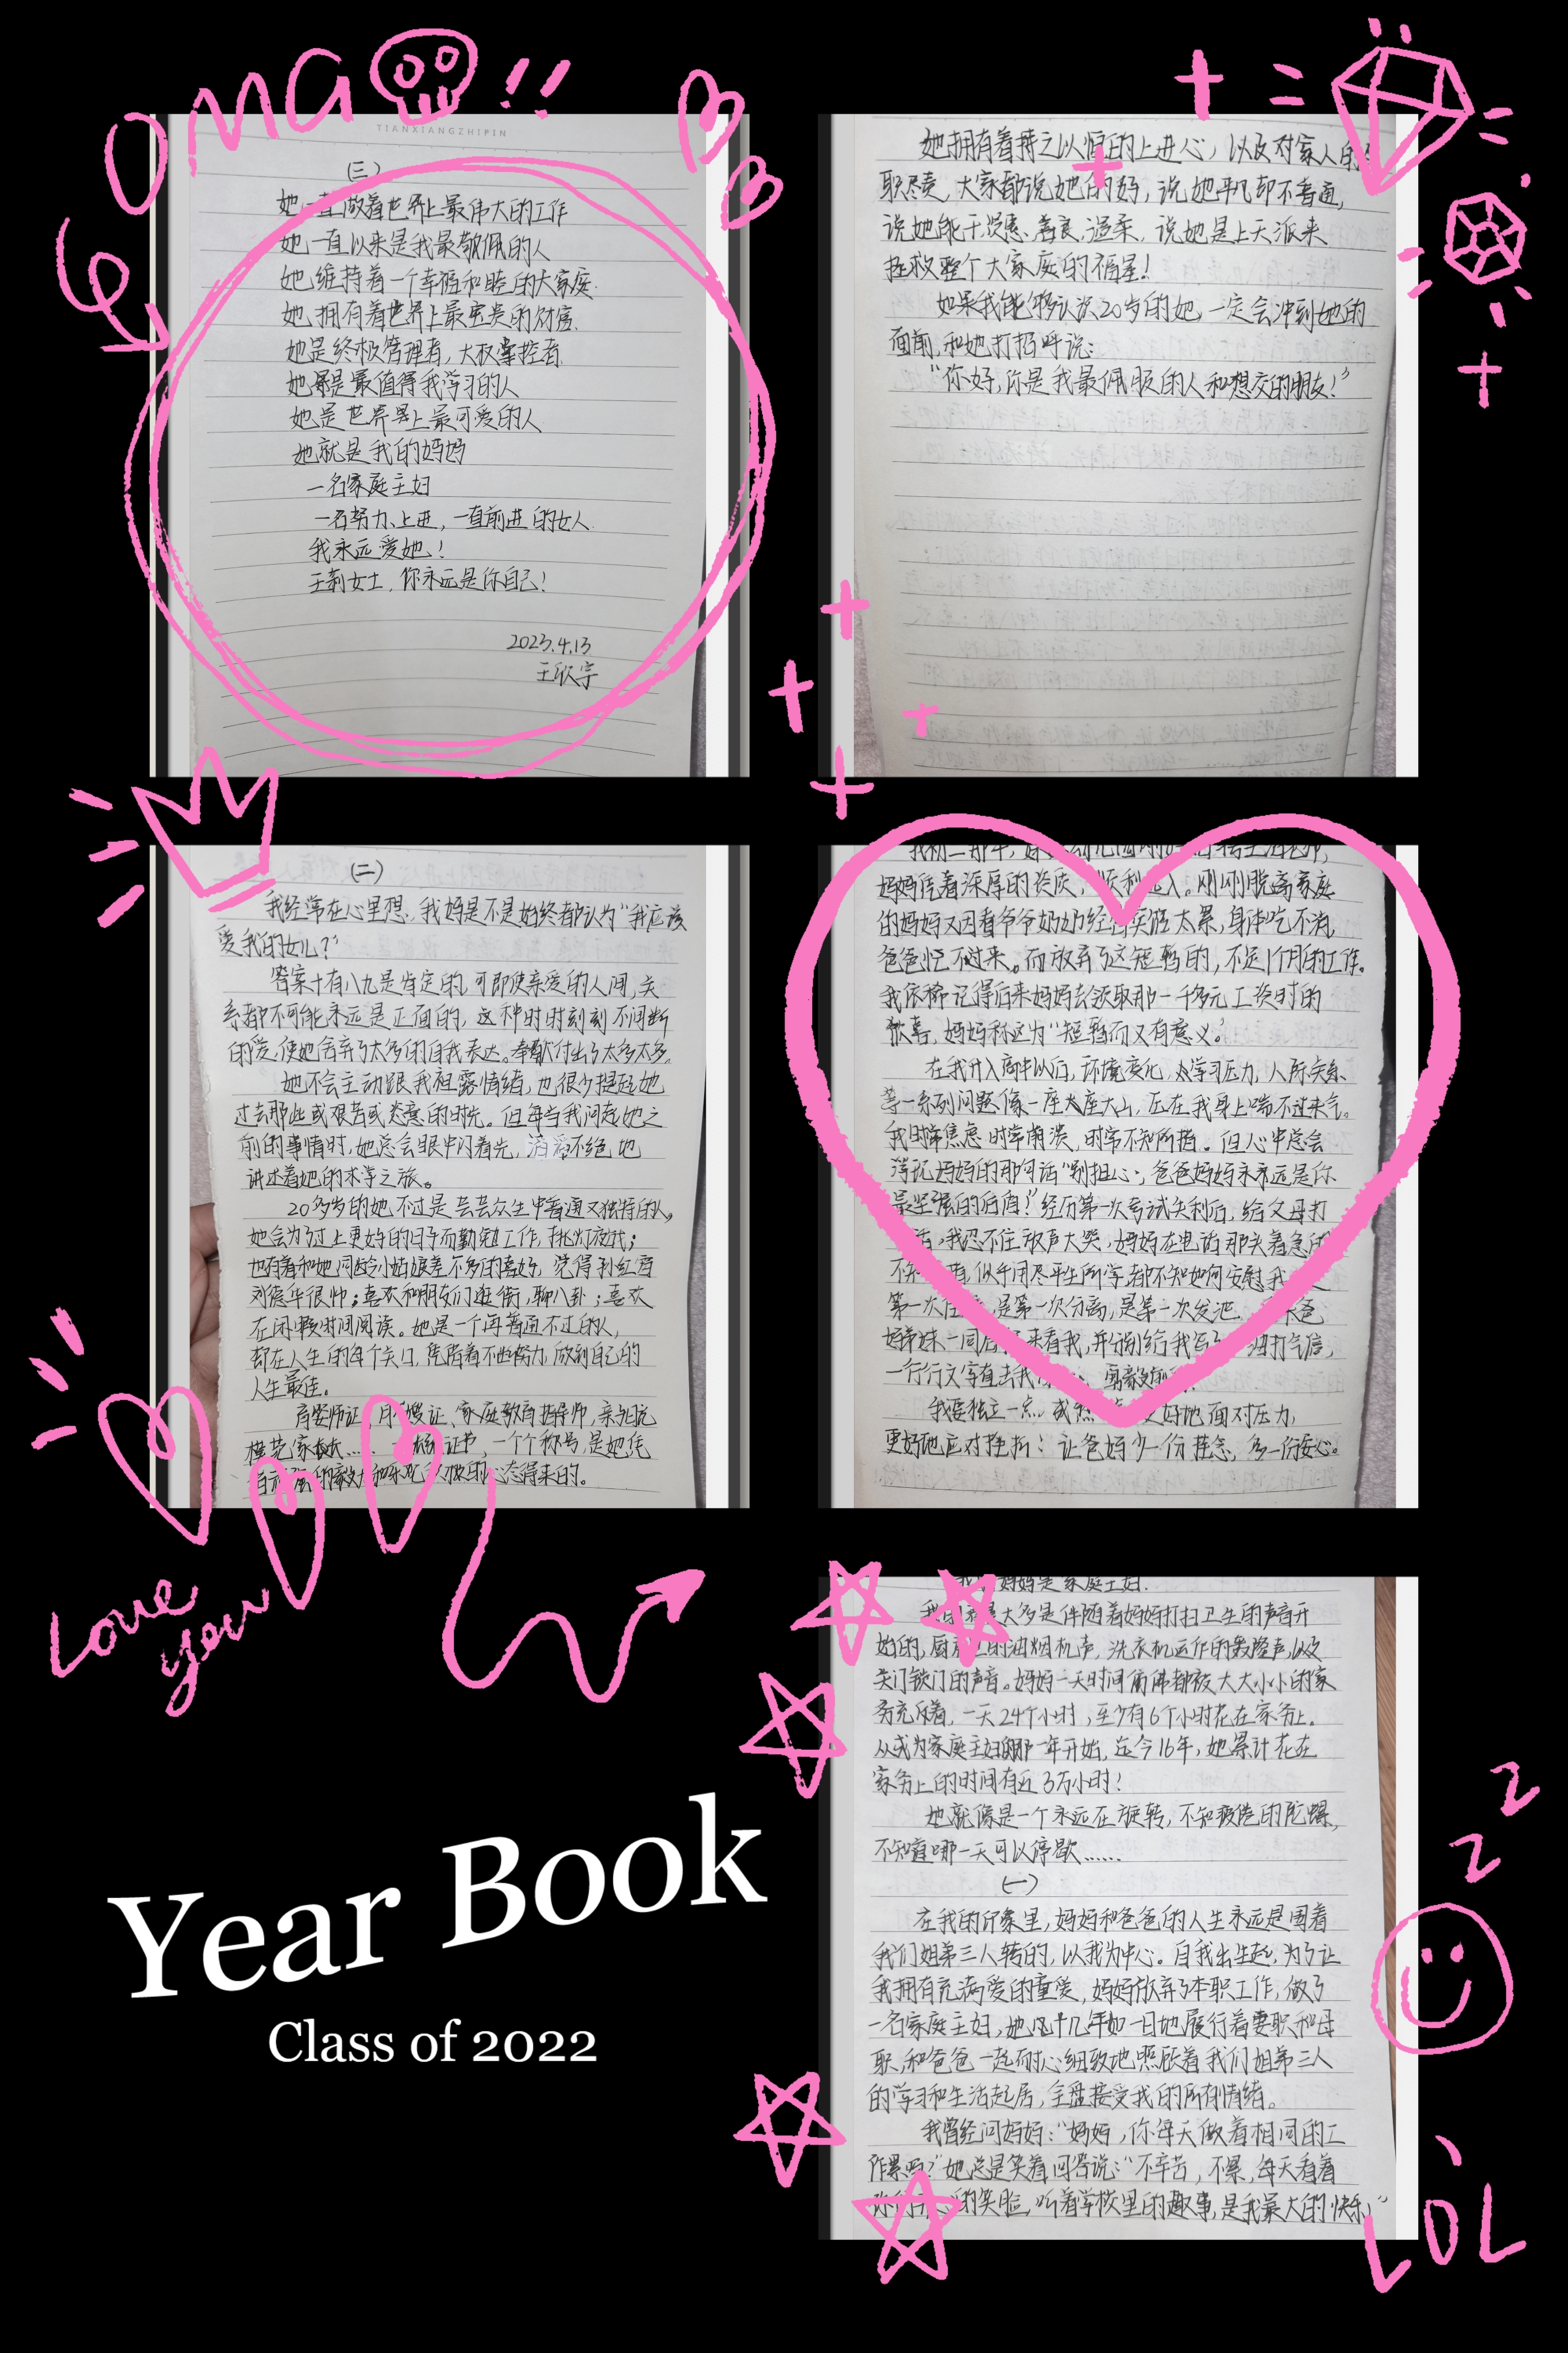 OMG!!
TIANXIANGZHIPIN
(三)
她一直做着世界上最伟大的工作
她一直以来是我最敬佩的人
她维持着一个幸福和睦的大家庭.
她拥有着世界上最宝贵的财富.
她是终极管理者,大权掌控者.
她是最值得我学习的人
她是世界上最可爱的人
她就是我的妈妈
一名家庭主妇
一名努力、上进,一直前进的女人.
我永远爱她!
王莉女士,你永远是你自己!
2023.4.13
王欣宇
她拥有着持之以恒的上进心,以及对家人的
职尽责,大家都说她的好,说她平凡却不普通,
说她能干、贤惠、善良、温柔,说她是上天派来
拯救整个大家庭的福星!
如果我能够认识20岁的她,一定会冲到她的
面前,和她打招呼说:
“你好,你是我最佩服的人和想交的朋友!”
(二)
我经常在心里想,我妈是不是始终都认为“我应该
爱我的女儿?”
答案十有八九是肯定的,可即使亲爱的人间,关
系都不可能永远是正面的,这种时时刻刻不间断
的爱,使她舍弃了太多的自我表达,奉献付出了太多太多.
她不会主动跟我袒露情绪,也很少提起她
过去那些或艰苦或恣意的时光。但每当我问起她之
前的事情时,她总会眼中闪着光,滔滔不绝地
讲述着她的求学之旅。
20多岁的她不过是芸芸众生中普通又独特的人,
她会为了过上更好的日子而勤勉工作,挑灯夜战;
也有着和她同龄小姑娘差不多的喜好,觉得
刘德华很帅;喜欢和朋友们逛街,聊八卦;喜欢
在闲暇时间阅读。她是一个再普通不过的人,
却在人生的每个关口,凭借着不懈努力,做到自己的
人生最佳。
育婴师证、月嫂证、家庭教育指导师,亲
模范家长……证书,一个个称号,是她凭
的毅力和的心态得来的。
我初二那年,
妈妈凭着深厚的资质,顺利进入。刚刚脱离家庭
的妈妈又因着爷爷奶奶经常买医太累,身体吃不消
爸爸忙不过来。而放弃了这短暂的,不足1个月的工作.
我依稀记得后来妈妈去领取那一千多元工资时的
欣喜,妈妈称这为“短暂而又有意义”。
在我升入高中以后,环境变化,学习压力,人际关系、
等一系列问题像一座大座大山,压在我身上喘不过来气。
我时常焦虑,时常崩溃,时常不知所措。但心中总会
浮现妈妈的那句话“别担心,爸爸妈妈永远是你
最坚强的后盾!”经历第一次考试失利后,给父母打
,我忍不住放声大哭,妈妈在电话那头着急的
不知,似乎用尽平生所学都不知如何安慰我
第一次住,是第一次分离,是第一次发泄。爸
妈弟妹一同来看我,并分别给我写了打气信,
一行行文字直击我
我要独立一点,成熟更好地面对压力,
更好地应对挫折!让爸妈少一份挂念,多一份安心。
妈妈是家庭主妇.
我的大多是伴随着妈妈打扫卫生的声音开
始的,厨房里的油烟机声,洗衣机运作的轰隆声,以及
关门锁门的声音。妈妈一天时间仿佛都被大大小小的家
务充斥着,一天24个小时,至少有6个小时花在家务上。
从成为家庭主妇那一年开始,迄今16年,她累计花在
家务上的时间有近3万小时!
她就像是一个永远在旋转,不知疲倦的陀螺,
不知道哪一天可以停歇……
(一)
在我的印象里,妈妈和爸爸的人生永远是围着
我们姐弟三人转的,以我为中心。自我出生起,为了让
我拥有充满爱的童年,妈妈放弃了本职工作,做了
一名家庭主妇,她几十几年如一日地履行着妻职和母
职,和爸爸一起耐心细致地照顾着我们姐弟三人
的学习和生活起居,全盘接受我的所有情绪。
我曾经问妈妈:“妈妈,你每天做着相同的工
作累吗?”她总是笑着回答说:“不辛苦,不累,每天看着
的笑脸,听着学校里的趣事,是我最大的快乐”
Love
you
Year Book
Class of 2022
z
z
LOL